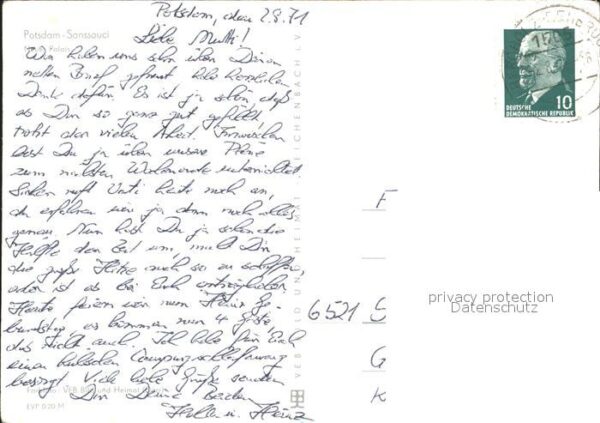 Potsdam, den 2.8.71
Potsdam - Sanssouci
Neues Palais
Liebe Mutti!
Wir haben uns schon über Deinen
netten Brief gefreut. Hab herzlichen
Dank dafür. Es ist ja schön, daß
es Dir so ganz gut gefällt,
trotz der vielen Arbeit. Inzwischen
bist Du ja über unsere Pläne
zum nächsten Wochenende unterrichtet.
Sicher ruft Vati heute noch an,
da erfahren wir ja dann noch alles
genau. Nun hast Du ja schon die
Hälfte der Zeit um, macht Dir
die große Hitze noch so zu schaffen,
oder ist es bei Euch erträglicher.
Heute feiern wir nun Heinz Ge-
burtstag, es kommen nur 4 Gäste,
das reicht auch. Ich habe für Euch
einen Campingschlafanzug
besorgt. Viele liebe Grüße senden
Dir Deine beiden
Heinz
VEB Bild und Heimat
EVP 0,20 M
VEB BILD UND HEIMAT REICHENBACH I. V.
DEUTSCHE
DEMOKRATISCHE REPUBLIK
10
F
6521 S
G
K
privacy protection
Datenschutz